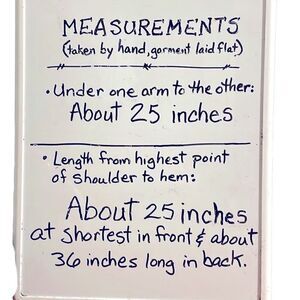 MEASUREMENTS
(taken by hand, garment laid flat)
• Under one arm to the other:
About 25 inches
• Length from highest point
of shoulder to hem:
About 25 inches
at shortest in front & about
36 inches long in back.